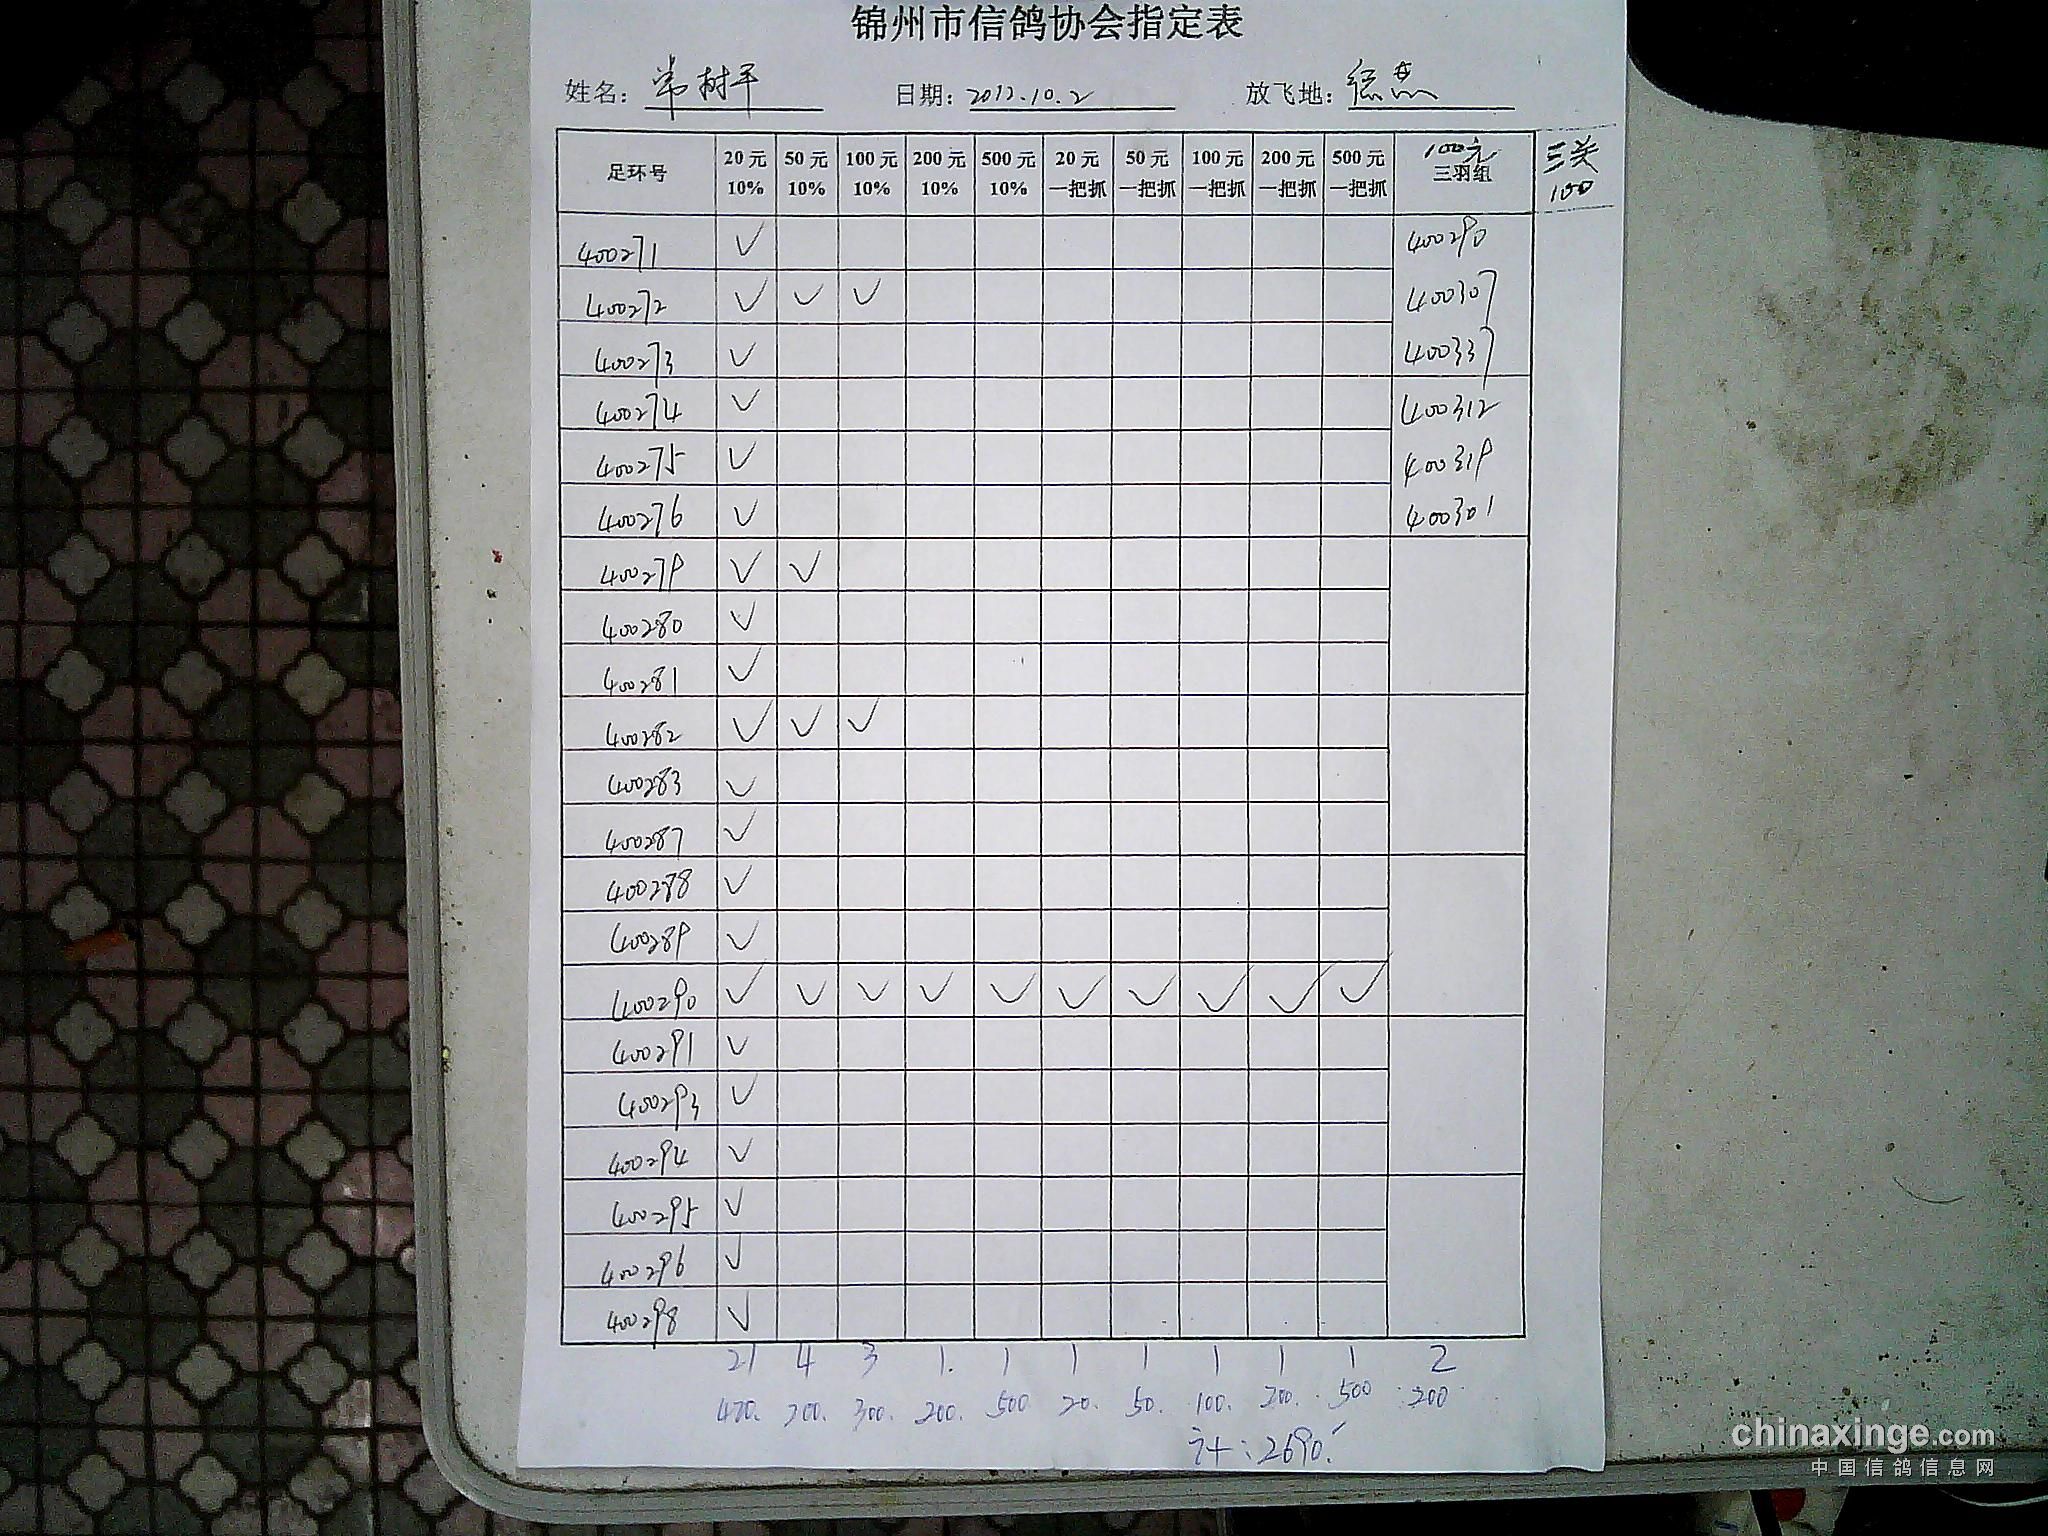 锦州市信鸽协会指定表
姓名: 常树平 日期: 2012.10.2 放飞地: 绥燕
足环号 20元 10% 50元 10% 100元 10% 200元 10% 500元 10% 20元 一把抓 50元 一把抓 100元 一把抓 200元 一把抓 500元 一把抓 100元 三羽组 三关 100
400271 ✓ 400290
400272 ✓ ✓ ✓ 400307
400273 ✓ 400337
400274 ✓ 400312
400275 ✓ 400319
400276 ✓ 400301
400279 ✓ ✓
400280 ✓
400281 ✓
400282 ✓ ✓ ✓
400283 ✓
400287 ✓
400288 ✓
400289 ✓
400290 ✓ ✓ ✓ ✓ ✓ ✓ ✓ ✓ ✓ ✓
400291 ✓
400293 ✓
400294 ✓
400295 ✓
400296 ✓
400298 ✓
21 4 3 1. 1 1 1 1 1 1 2
420. 200. 300. 200. 500 20. 50. 100. 200. 500 200
计:2690.
chinaxinge.com
中国信鸽信息网